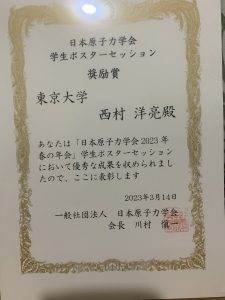 日本原子力学会
学生ポスターセッション
奨励賞
東京大学
西村 洋亮殿
あなたは「日本原子力学会2023年
春の年会」学生ポスターセッション
において優秀な成果を収められまし
たので、ここに表彰します
2023年3月14日
一般社団法人 日本原子力学会
会長 川村 慎一